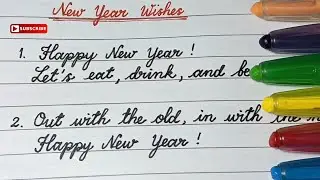 New Year Wishes
SUBSCRIBE
1. Happy New Year!
Let's eat, drink, and be
2. Out with the old, in with the
Happy New Year!